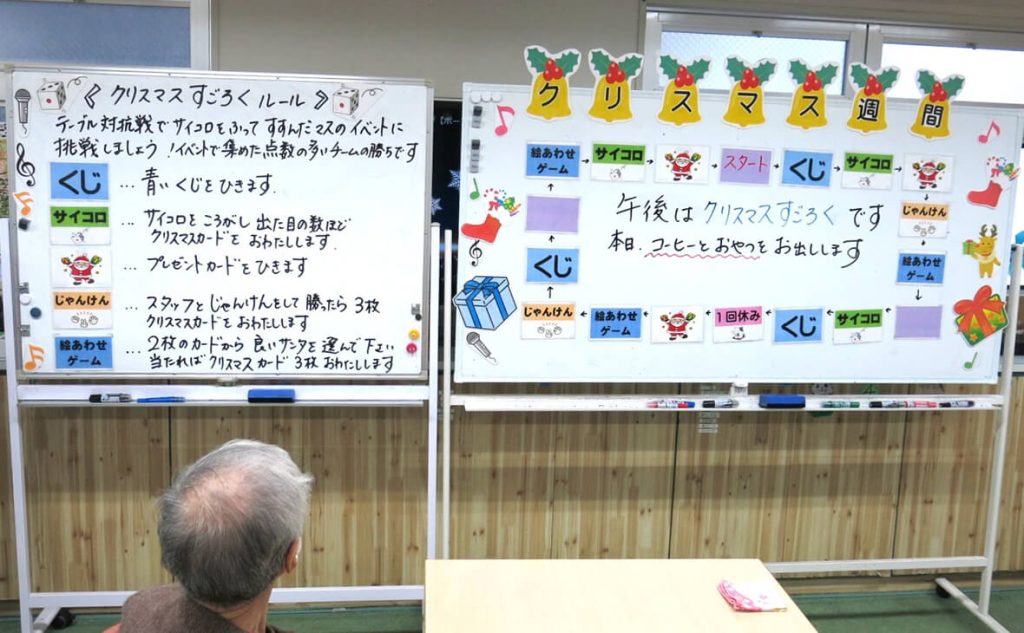 《クリスマスすごろくルール》
テーブル対抗戦でサイコロをふってすすんだマスのイベントに
挑戦しましょう!イベントで集めた点数の多いチームの勝ちです
くじ … 青いくじをひきます.
サイコロ … サイコロをころがし出た目の数ほど
クリスマスカードをおわたしします.
… プレゼントカードをひきます
じゃんけん … スタッフとじゃんけんをして勝ったら3枚
クリスマスカードをおわたしします
絵あわせ
ゲーム … 2枚のカードから良いサンタを選んで下さい
当たればクリスマスカード3枚おわたしします
クリスマス週間
絵あわせ
ゲーム
サイコロ
スタート
くじ
サイコロ
じゃんけん
絵あわせ
ゲーム
午後はクリスマスすごろくです
本日.コーヒーとおやつをお出しします
くじ
じゃんけん
絵あわせ
ゲーム
1回休み
くじ
サイコロ